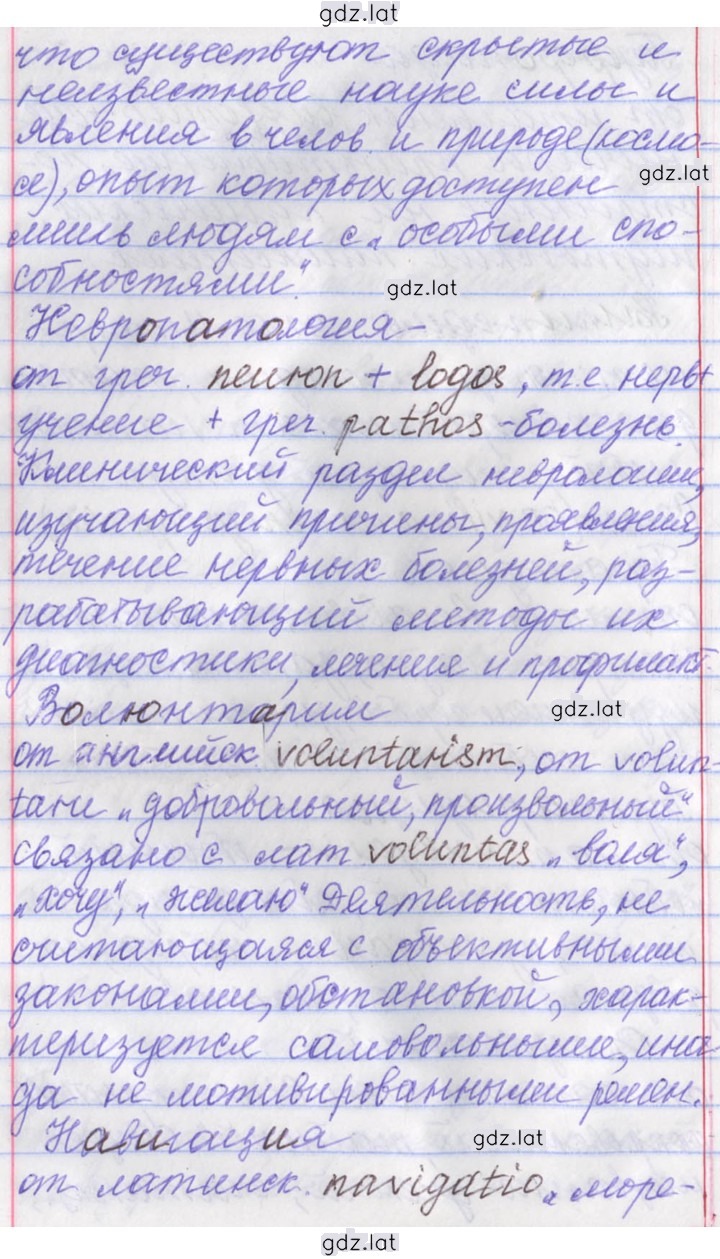 gdz.lat
что существуют скрытые и
неизвестные науке силы и
явления в челов. и природе (космо-
се), опыт которых доступен
gdz.lat
лишь людям с „особыми спо-
собностями".
gdz.lat
Невропатология -
от греч. neuron + logos, т.е. нерв+
учение + греч. pathos - болезнь.
Клинический раздел неврологии,
изучающий причины, проявления,
течение нервных болезней, раз-
рабатывающий методы их
диагностики, лечения и профилакт.
Волюнтарим
gdz.lat
от английск. voluntarism, от volun-
tari „добровольный, произвольный"
связано с лат voluntas „воля",
„хочу", „желаю" Деятельность, не
считающаяся с объективными
законами, обстановкой, харак-
теризуется самовольными, иног
да не мотивированными решен.
Навигация
gdz.lat
от латинск. navigatio „море-
gdz.lat